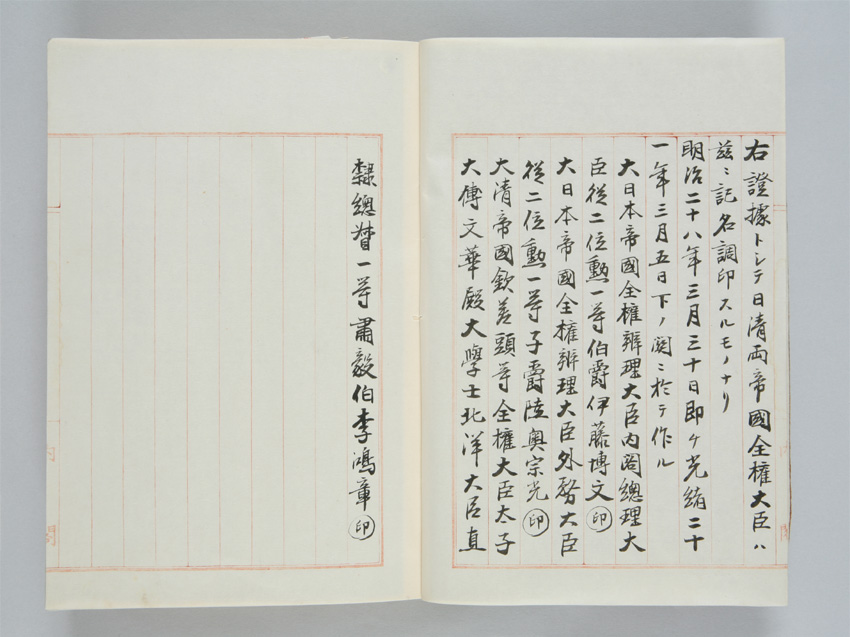 右證據トシテ日清両帝國全權大臣ハ
茲ニ記名調印スルモノナリ
明治二十八年三月三十日即ケ光緒二十
一年三月五日下ノ関ニ於テ作ル
大日本帝國全権辨理大臣内閣總理大
臣従二位勲一等伯爵伊藤博文印
大日本帝國全権辨理大臣外務大臣
従二位勲一等子爵陸奥宗光印
大清帝國欽差頭等全權大臣太子
大傅文華殿大學士北洋大臣直
隷總督一等肅毅伯李鴻章印
内閣
内閣